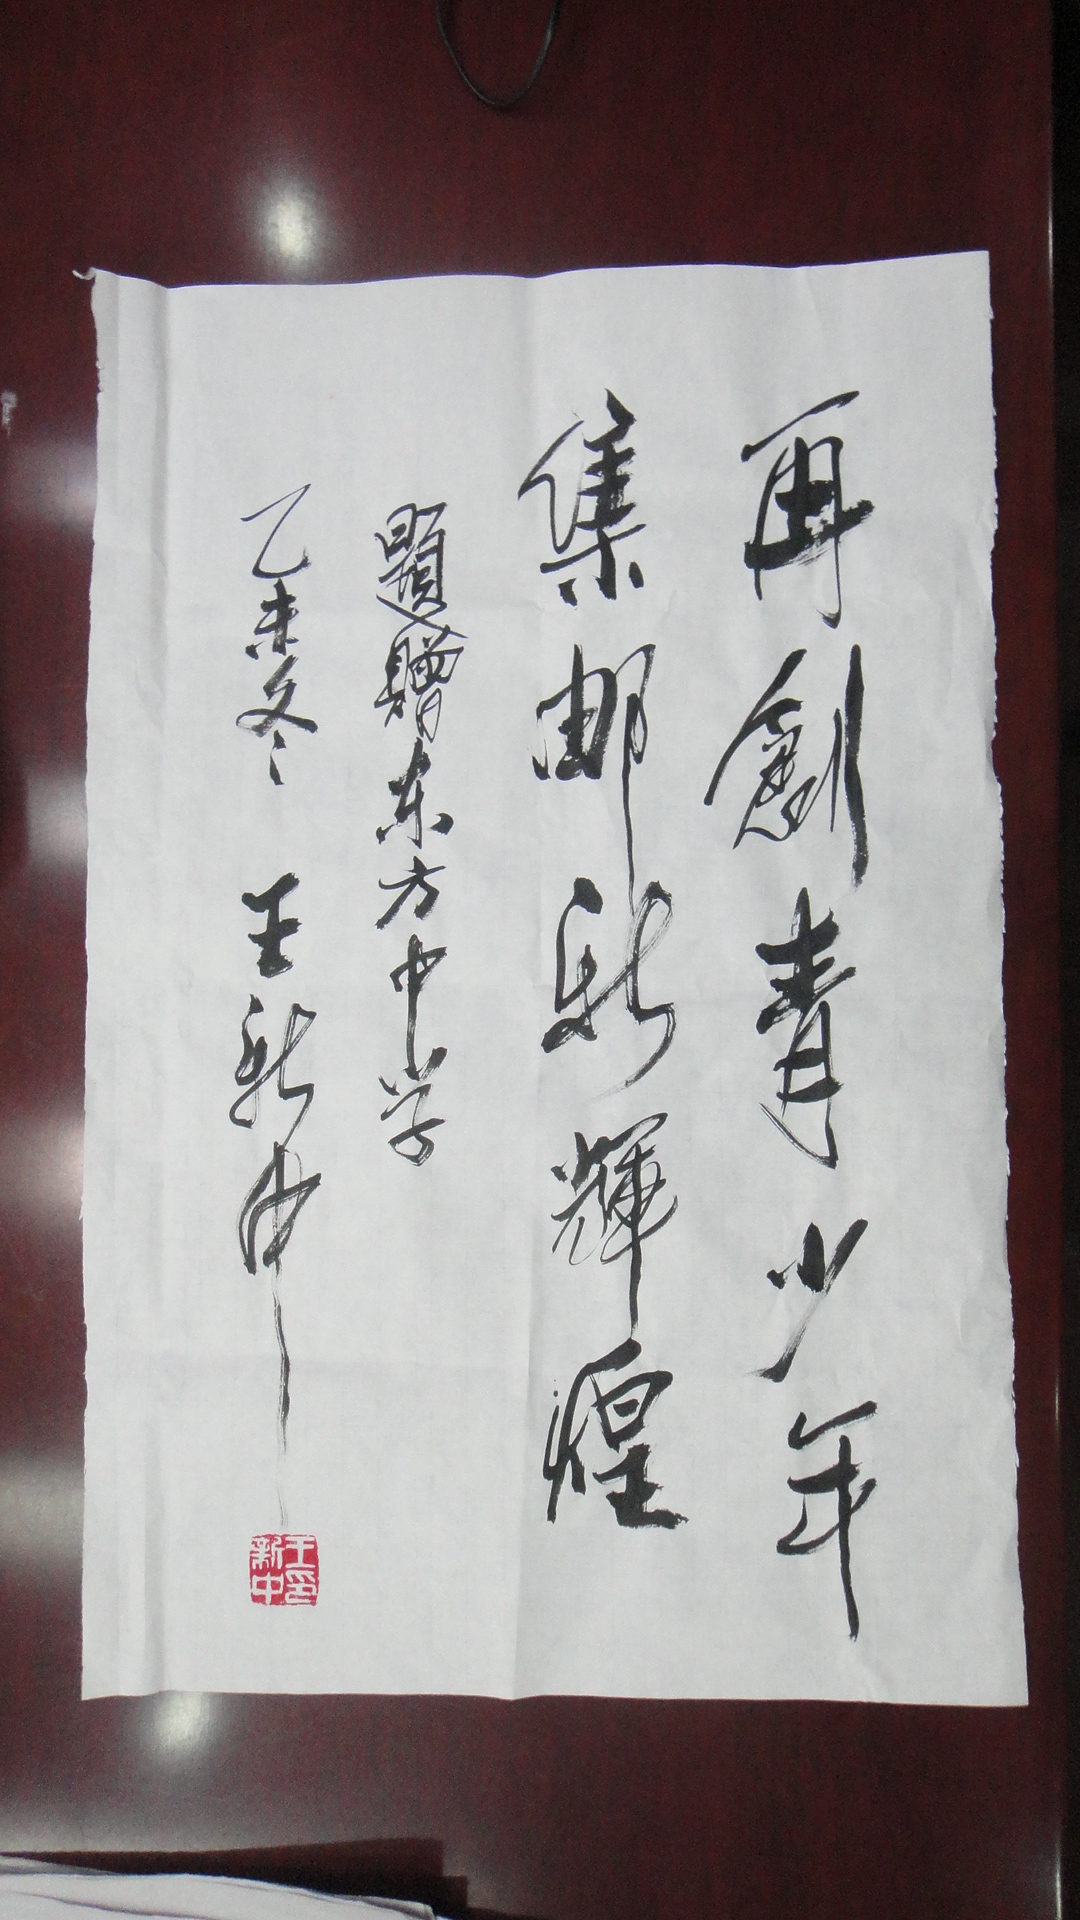 再創青少年
集邮新輝煌
題贈东方中学
乙未冬 王新中
王印新中